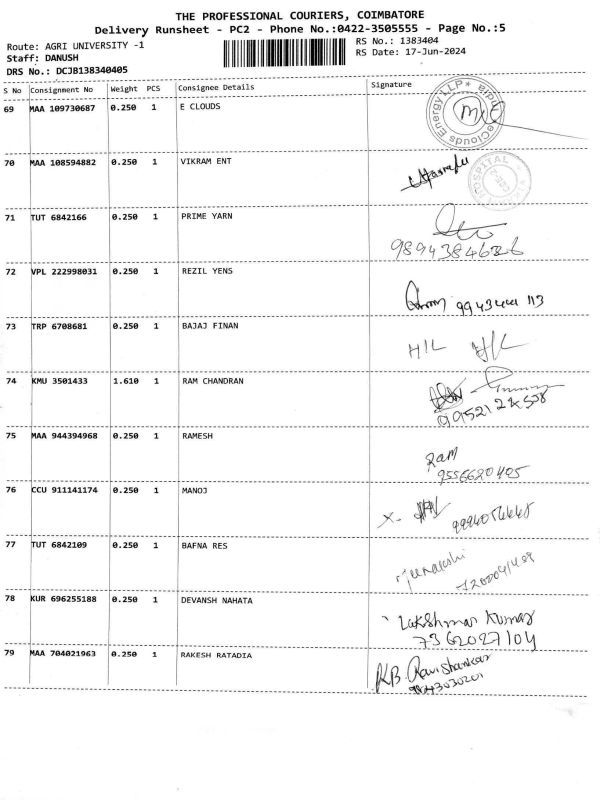 THE PROFESSIONAL COURIERS, COIMBATORE
Delivery Runsheet - PC2 - Phone No.:0422-3505555 - Page No.:5
Route: AGRI UNIVERSITY -1
Staff: DANUSH
DRS No.: DCJB138340405
RS No.: 1383404
RS Date: 17-Jun-2024
S No Consignment No Weight PCS Consignee Details Signature
69 MAA 109730687 0.250 1 E CLOUDS
70 MAA 108594882 0.250 1 VIKRAM ENT
71 TUT 6842166 0.250 1 PRIME YARN
72 VPL 222998031 0.250 1 REZIL YENS
73 TRP 6708681 0.250 1 BAJAJ FINAN
H/L H/L
74 KMU 3501433 1.610 1 RAM CHANDRAN
75 MAA 944394968 0.250 1 RAMESH
Ram
9556620405
76 CCU 911141174 0.250 1 MANOJ
77 TUT 6842109 0.250 1 BAFNA RES
78 KUR 696255188 0.250 1 DEVANSH NAHATA
Lakshmar Kumar
7362027104
79 MAA 704021963 0.250 1 RAKESH RATADIA
KB. Ravishankar
9843030201